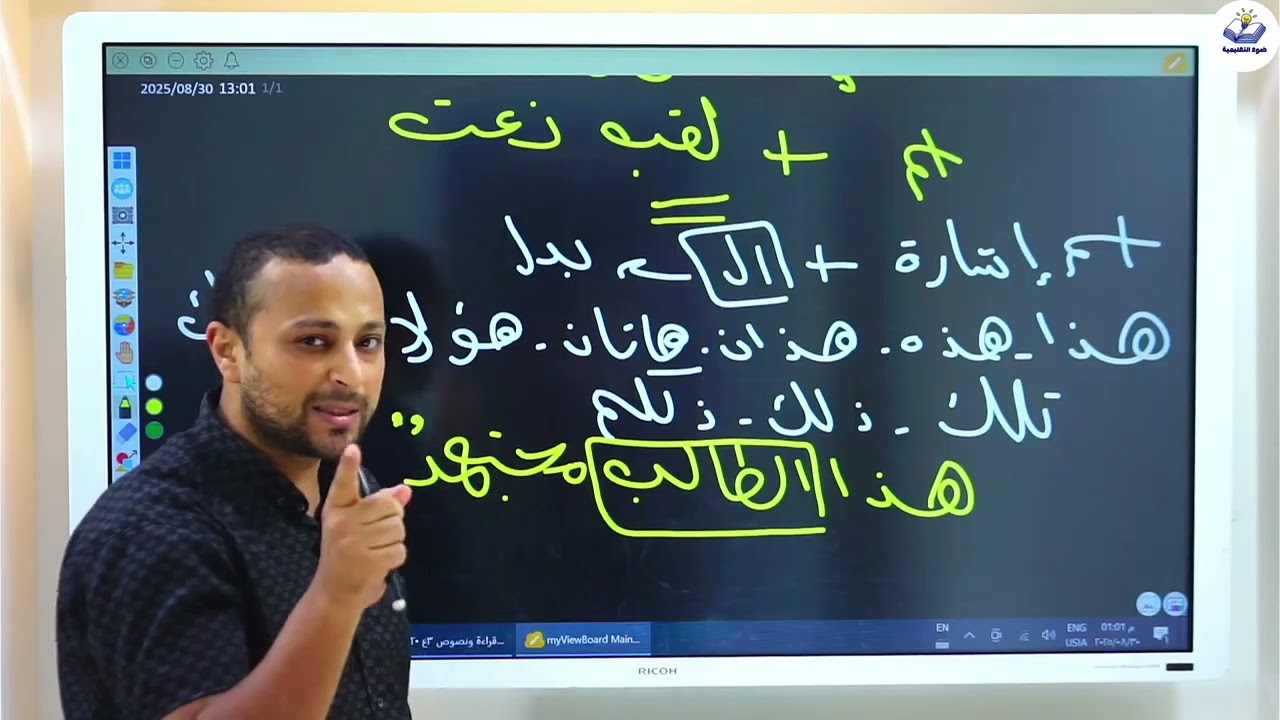 ضوة التعليمية
2025/08/30 13:01 1/1
+ لقبه نعت
اسم إشارة + ال بدل
هذا - هذه - هذان - هاتان - هؤلا
تلك - ذلك - ذلكم
هذا الطالب مجتهد
EN
ENG
USIA
٠١:٠١ م
٢٠٢٥/٠٨/٣٠
قراءة ونصوص ٣ع ٢٠...
myViewBoard Main...
RICOH